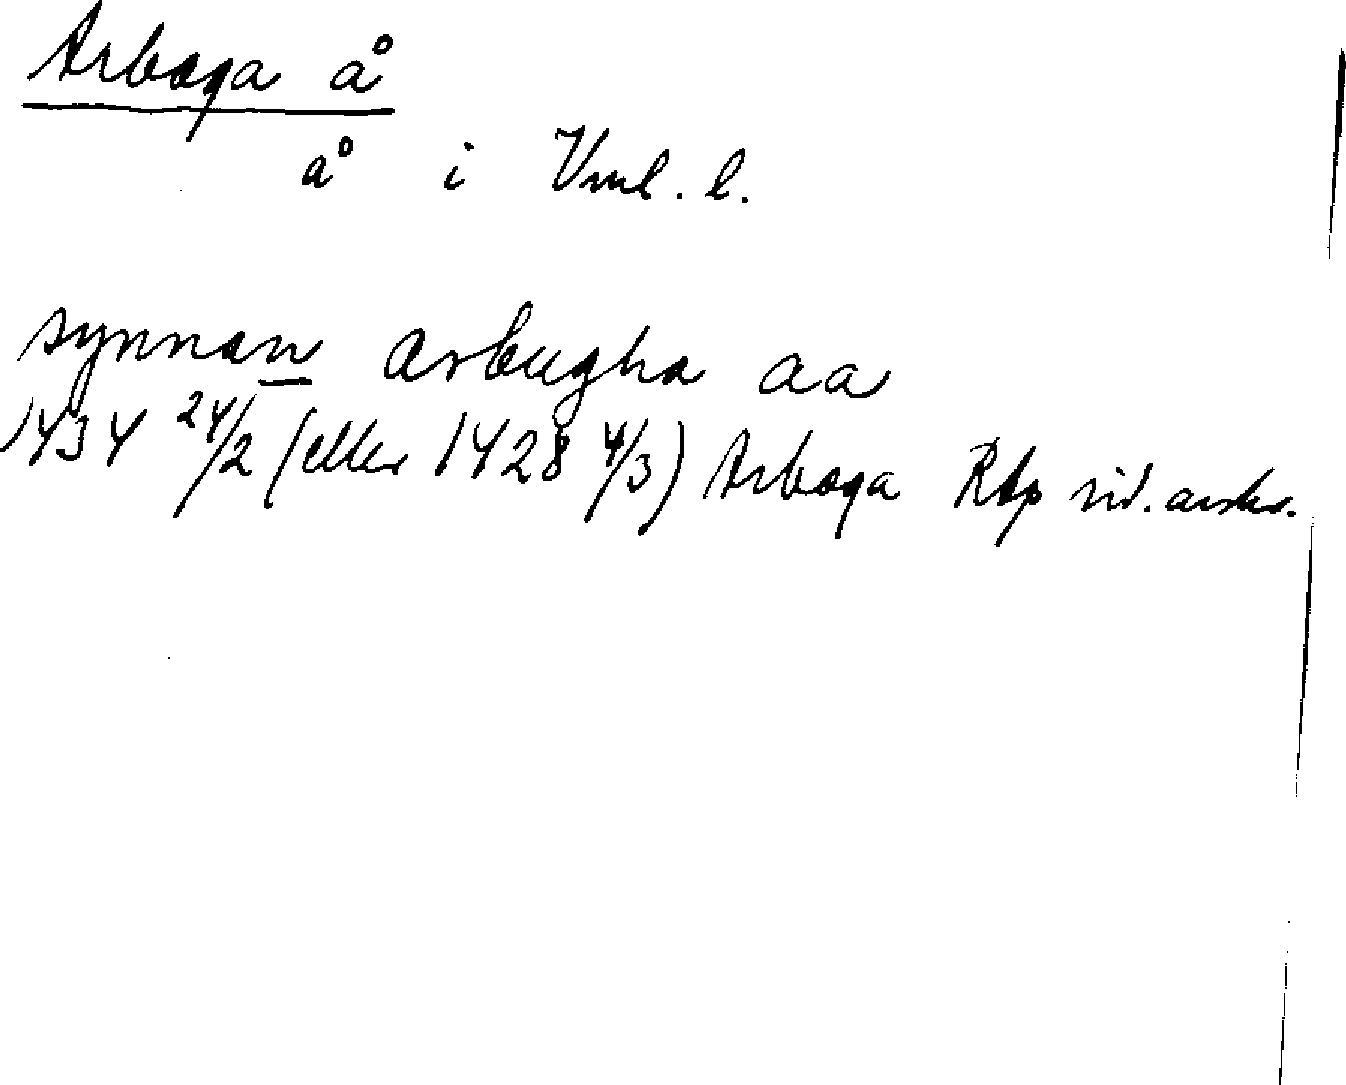 Arboga å
å i Vml. l.
synnan arbugha aa
1434 24/2 (eller 1428 4/3) Arboga Rbp vid. avskr.